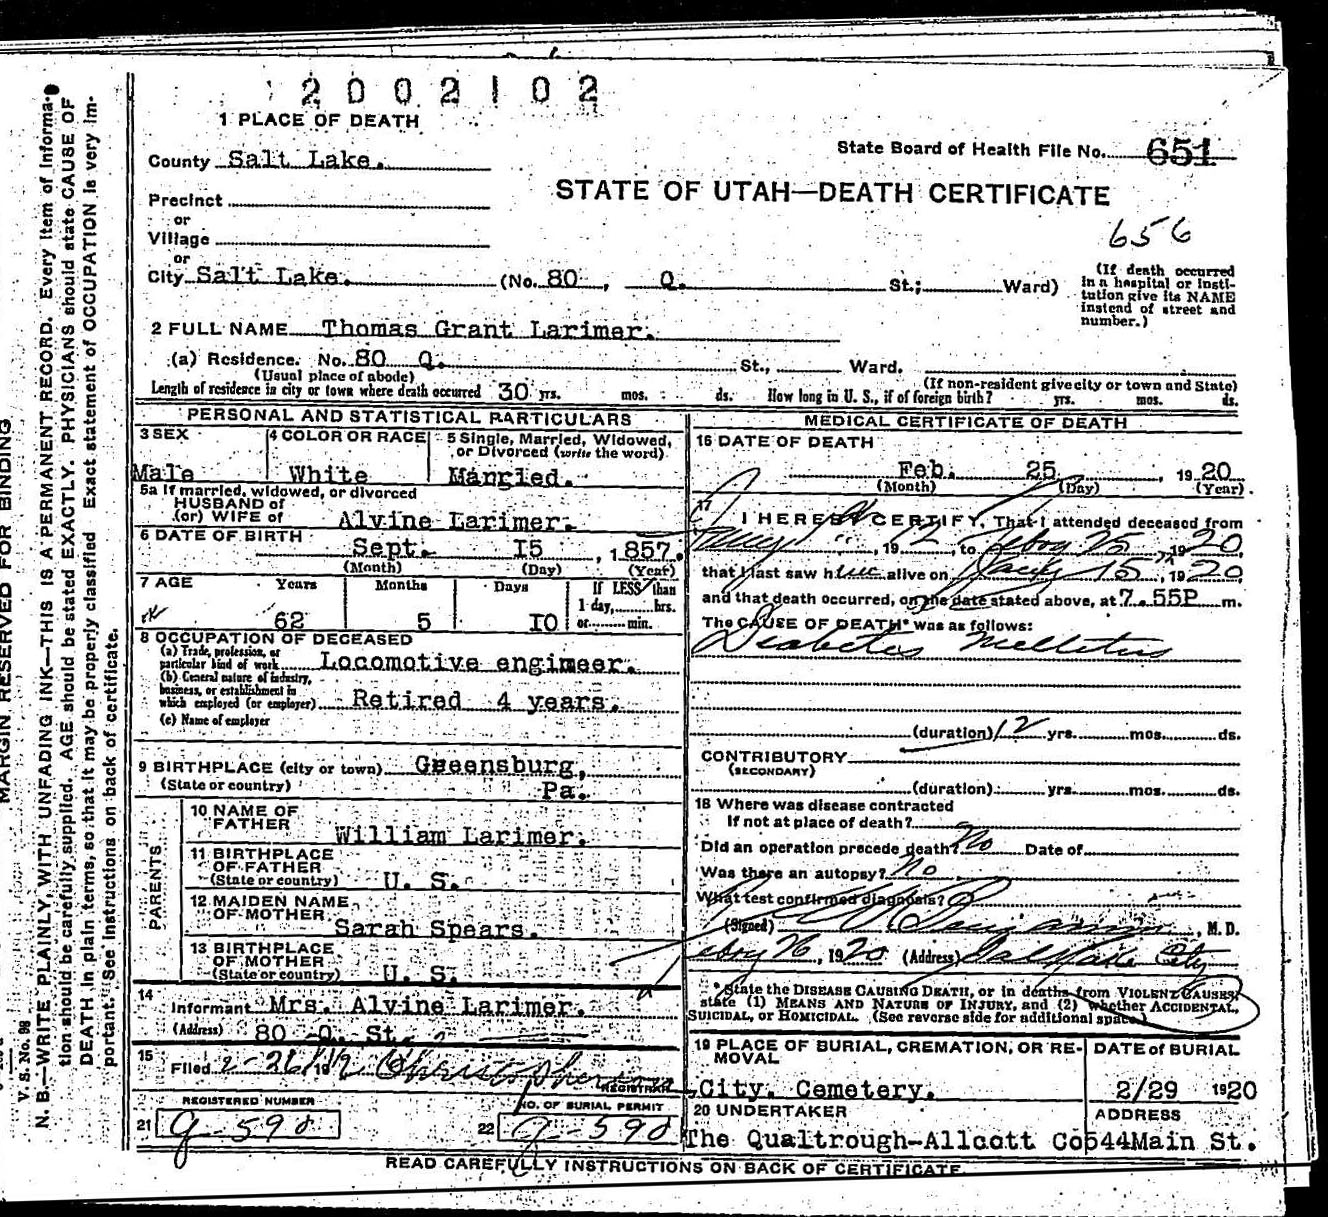 2002102
1 PLACE OF DEATH
County Salt Lake.
State Board of Health File No. 651
STATE OF UTAH—DEATH CERTIFICATE
656
Precinct
or
Village
or
City Salt Lake. (No. 80 , Q. St.; Ward)
(If death occurred
in a hospital or insti-
tution give its NAME
instead of street and
number.)
2 FULL NAME Thomas Grant Larimer.
(a) Residence. No. 80 Q. St., Ward.
(Usual place of abode) (If non-resident give city or town and State)
Length of residence in city or town where death occurred 30 yrs. mos. ds. How long in U. S., if of foreign birth? yrs. mos. ds.
PERSONAL AND STATISTICAL PARTICULARS
3 SEX
Male
4 COLOR OR RACE
White
5 Single, Married, Widowed,
or Divorced (write the word)
Married.
5a If married, widowed, or divorced
HUSBAND of
(or) WIFE of Alvine Larimer.
6 DATE OF BIRTH
Sept. I5 , 1857.
(Month) (Day) (Year)
7 AGE Years Months Days If LESS than
1 day, hrs.
62 5 I0 or min.
8 OCCUPATION OF DECEASED
(a) Trade, profession, or
particular kind of work Locomotive engineer.
(b) General nature of industry,
business, or establishment in
which employed (or employer) Retired 4 years.
(c) Name of employer
9 BIRTHPLACE (city or town) Greensburg,
(State or country) Pa.
PARENTS
10 NAME OF
FATHER William Larimer.
11 BIRTHPLACE
OF FATHER
(State or country) U. S.
12 MAIDEN NAME
OF MOTHER Sarah Spears.
13 BIRTHPLACE
OF MOTHER
(State or country) U. S.
14
Informant Mrs. Alvine Larimer.
(Address) 80 Q. St.
15
Filed 2-26 19 Christopherson
REGISTRAR
REGISTERED NUMBER
21 G-590
NO. OF BURIAL PERMIT
22 G-590
MEDICAL CERTIFICATE OF DEATH
16 DATE OF DEATH
Feb. 25 , 1920
(Month) (Day) (Year)
17
I HEREBY CERTIFY, That I attended deceased from
, 19 , to Febry 25 , 1920,
that I last saw him alive on 15 , 1920,
and that death occurred, on the date stated above, at 7.55P m.
The CAUSE OF DEATH* was as follows:
Diabetes Mellitus
(duration) 12 yrs. mos. ds.
CONTRIBUTORY
(SECONDARY)
(duration) yrs. mos. ds.
18 Where was disease contracted
If not at place of death?
Did an operation precede death? No Date of
Was there an autopsy? No
What test confirmed diagnosis?
(Signed) Benjamin , M. D.
Febry 26, 1920 (Address) Salt Lake City
*State the DISEASE CAUSING DEATH, or in deaths from VIOLENT CAUSES,
state (1) MEANS AND NATURE OF INJURY, and (2) whether ACCIDENTAL,
SUICIDAL, or HOMICIDAL. (See reverse side for additional space.)
19 PLACE OF BURIAL, CREMATION, OR RE-
MOVAL
City. Cemetery.
DATE of BURIAL
2/29 1920
20 UNDERTAKER
The Qualtrough-Allcott Co
ADDRESS
544Main St.
READ CAREFULLY INSTRUCTIONS ON BACK OF CERTIFICATE
MARGIN RESERVED FOR BINDING
V. S. No. 98
N. B.—WRITE PLAINLY, WITH UNFADING INK—THIS IS A PERMANENT RECORD. Every item of informa-
tion should be carefully supplied. AGE should be stated EXACTLY. PHYSICIANS should state CAUSE OF
DEATH in plain terms, so that it may be properly classified. Exact statement of OCCUPATION is very im-
portant. See instructions on back of certificate.